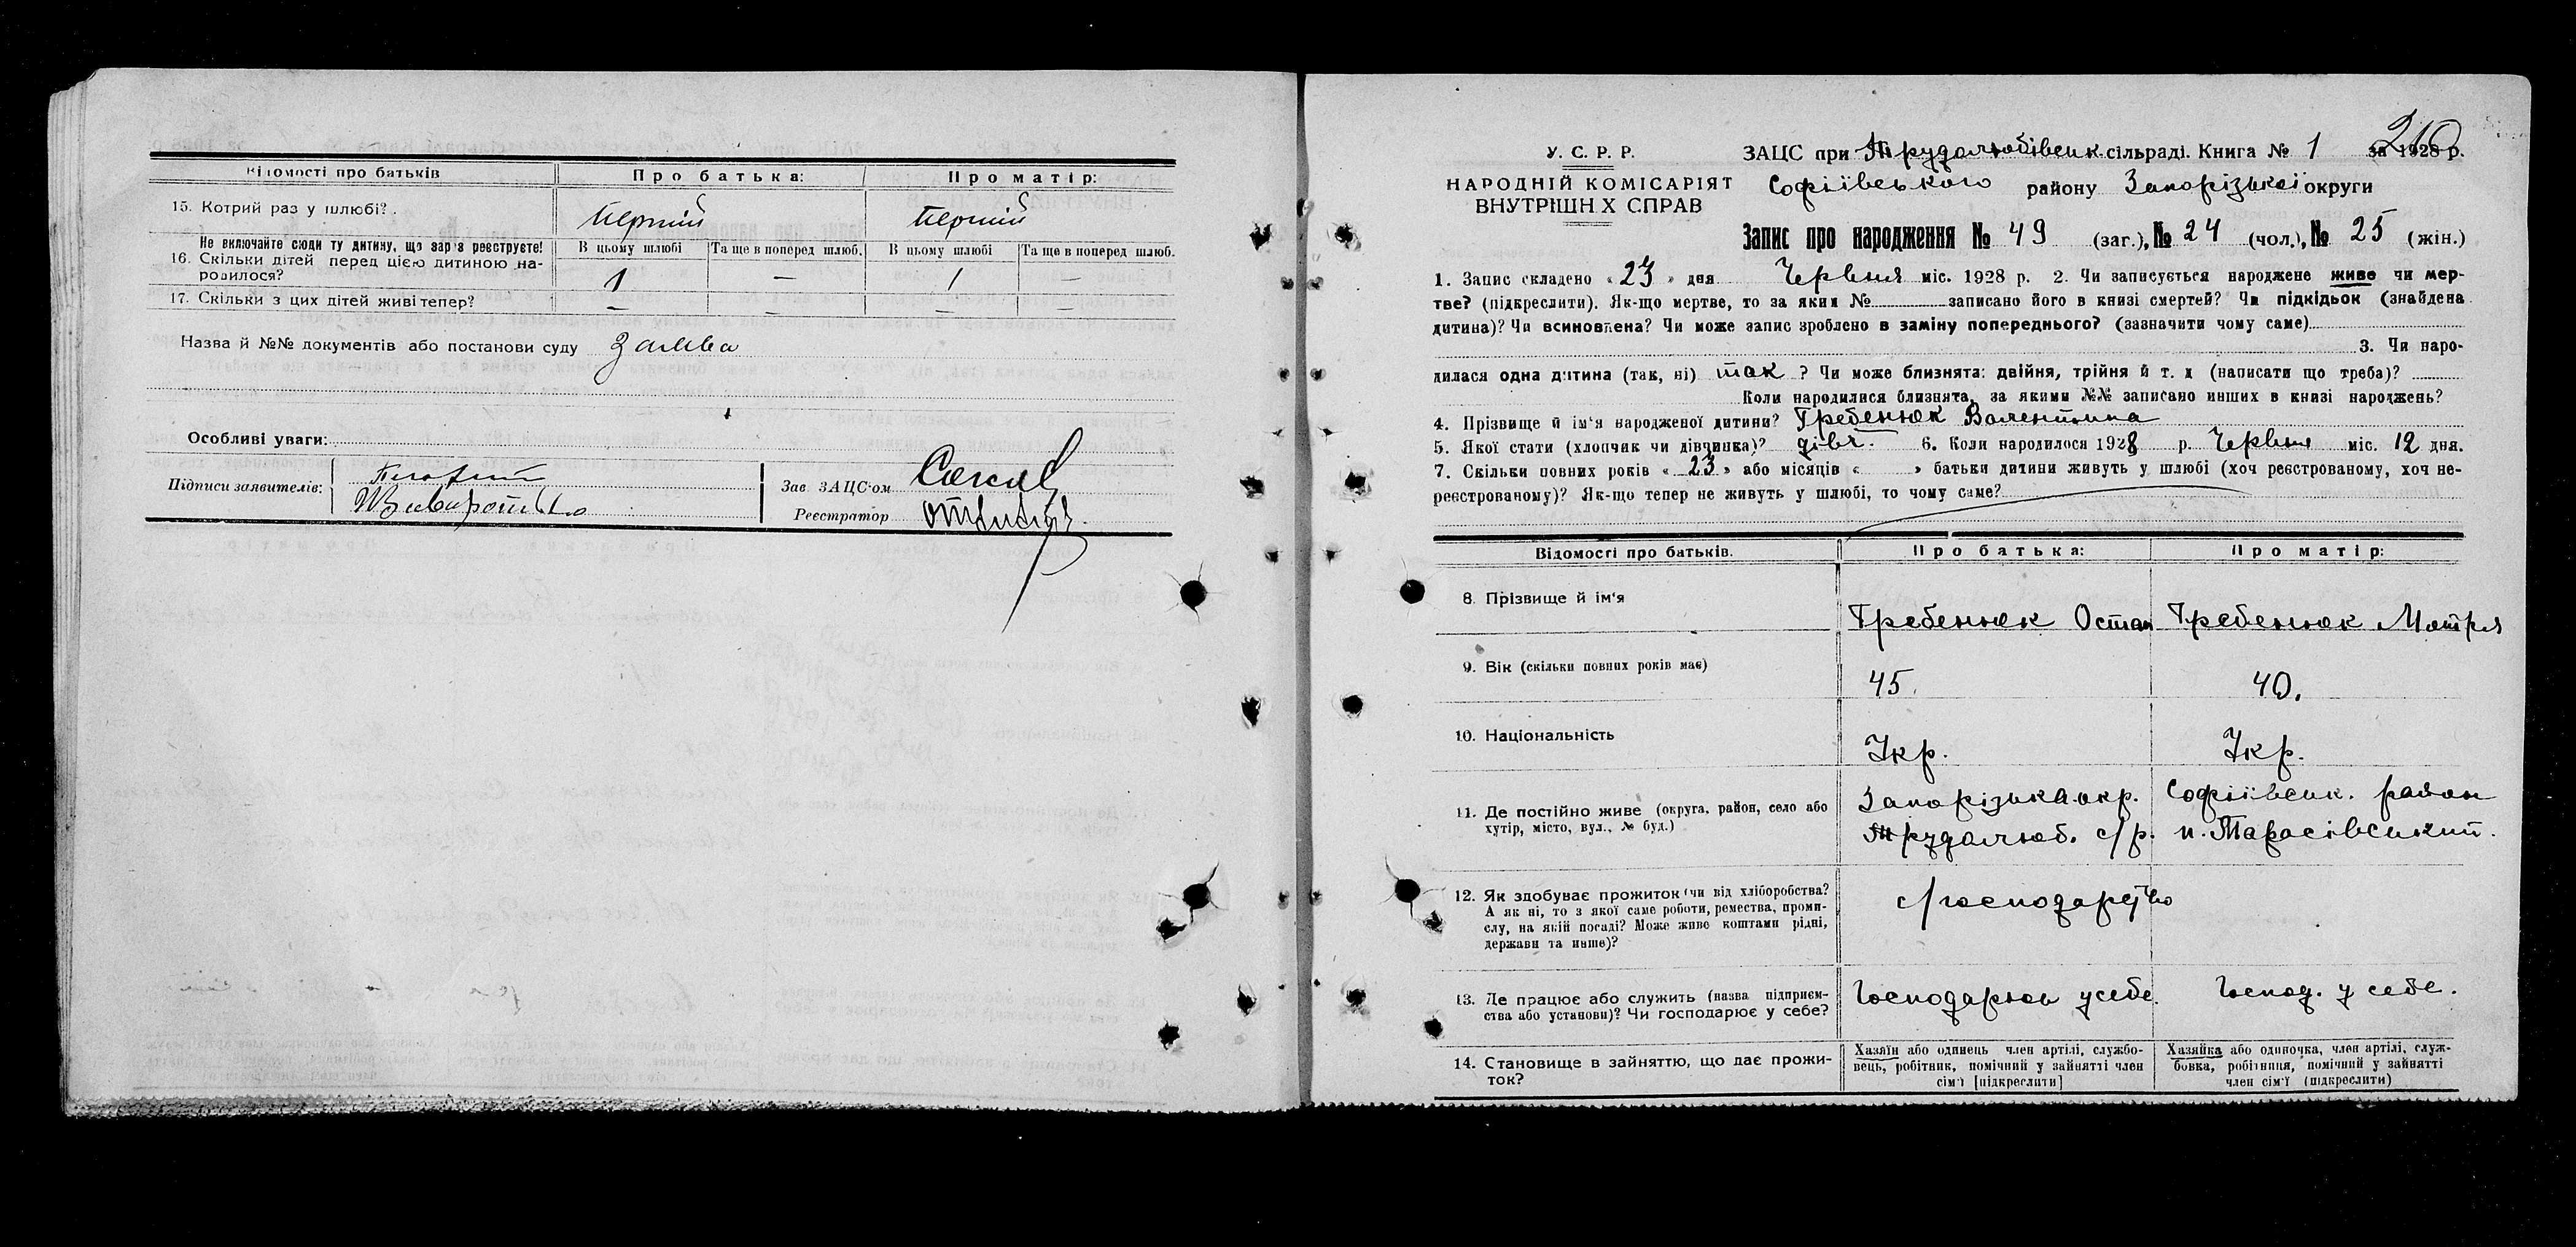 Відомості про батьків
Про батька:
Про матір:
15. Котрий раз у шлюбі?
Перший
Перший
Не включайте сюди ту дитину, що зараз реєструєте!
16. Скільки дітей перед цією дитиною народилося?
В цьому шлюбі
Та ще в поперед шлюб.
В цьому шлюбі
Та ще в поперед шлюб.
1
—
1
—
17. Скільки з цих дітей живі тепер?
—
—
—
—
Назва й №№ документів або постанови суду заява
Особливі уваги:
Підписи заявителів:
Зав ЗАЦС'ом
Реєстратор
210
У. С. Р. Р.
НАРОДНІЙ КОМІСАРІЯТ
ВНУТРІШНІХ СПРАВ
ЗАЦС при Трудолюбівськ. сільраді. Книга № 1 за 1928 р.
Софіївського району Запорізької округи
Запис про народження № 49 (заг.), № 24 (чол.), № 25 (жін.)
1. Запис складено «23» дня Червня міс. 1928 р. 2. Чи записується народжене живе чи мер-
тве? (підкреслити). Як-що мертве, то за яким № записано його в книзі смертей? Чи підкідьок (знайдена
дитина)? Чи всиновлена? Чи може запис зроблено в заміну попереднього? (зазначити чому саме)
3. Чи наро-
дилася одна дитина (так, ні) так ? Чи може близнята: двійня, трійня й т. д (написати що треба)?
Коли народилися близнята, за якими №№ записано инших в книзі народжень?
4. Прізвище й ім'я народженої дитини? Гребенюк Валентина
5. Якої стати (хлопчик чи дівчинка)? дівч. 6. Коли народилося 1928 р. Червня міс. 12 дня.
7. Скільки повних років «23» або місяців « » батьки дитини живуть у шлюбі (хоч реєстрованому, хоч не-
реєстрованому)? Як-що тепер не живуть у шлюбі, то чому саме?
Відомості про батьків.
Про батька:
Про матір:
8. Прізвище й ім'я
Гребенюк Остап
Гребенюк Мотря
9. Вік (скільки повних років має)
45.
40.
10. Національність
Укр.
Укр.
11. Де постійно живе (округа, район, село або
хутір, місто, вул., № буд.)
Запорізька окр. Софіївськ. район
Трудолюб. с/р. п. Тарасівський.
12. Як здобуває прожиток (чи від хліборобства?
А як ні, то з якої саме роботи, ремества, проми-
слу, на якій посаді? Може живе коштами рідні,
держави та инше)?
с/господарство
13. Де працює або служить (назва підприєм-
ства або установи)? Чи господарює у себе?
Господарює у себе.
Господ. у себе.
14. Становище в зайняттю, що дає прожи-
ток?
Хазяїн або одинець член артілі, службо-
вець, робітник, помічний у зайнятті член
сім'ї [підкреслити]
Хазяйка або одиночка, член артілі, служ-
бовка, робітниця, помічний у зайнятті
член сім'ї (підкреслити)